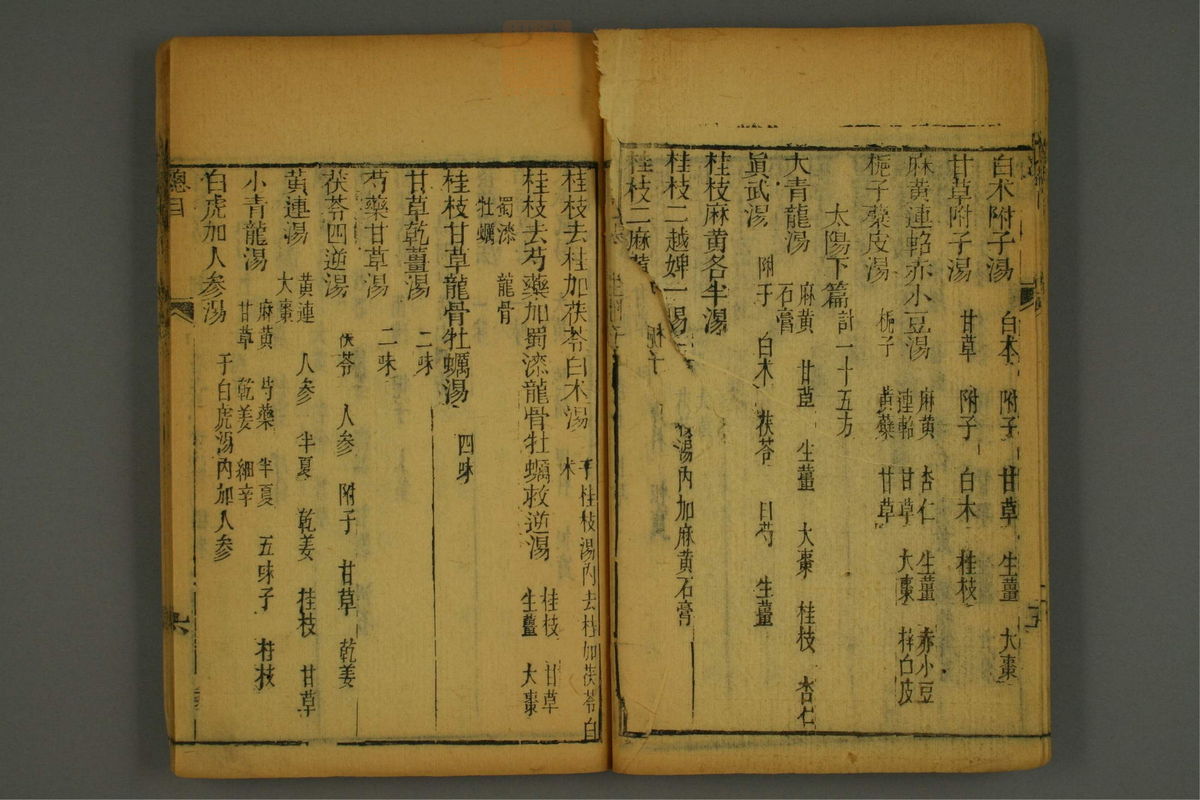 白术附子湯 白术 附子 甘草 生薑 大棗
甘草附子湯 甘草 附子 白术 桂枝
麻黄連軺赤小豆湯 麻黄 杏仁 生薑 赤小豆
連軺 甘草 大棗 梓白皮
梔子蘗皮湯 梔子 黄蘗 甘草
太陽下篇計一十五方
大青龍湯 麻黄 甘草 生薑 大棗 桂枝 杏仁
石膏
眞武湯 附子 白术 茯苓 白芍 生薑
桂枝麻黄各半湯
桂枝二越婢一湯 湯内加麻黄石膏
桂枝二麻黄
梔子
桂枝去桂加茯苓白术湯 于桂枝湯内去桂加茯苓白
术
桂枝去芍藥加蜀漆龍骨牡蠣救逆湯 桂枝 甘草
生薑 大棗
蜀漆 龍骨
牡蠣
桂枝甘草龍骨牡蠣湯 四味
甘草乾薑湯 二味
芍藥甘草湯 二味
茯苓四逆湯 茯苓 人参 附子 甘草 乾姜
黄連湯 黄連 人参 半夏 乾姜 桂枝 甘草
大棗
小青龍湯 麻黄 芍藥 半夏 五味子 桂枝
甘草 乾姜 細辛
白虎加人参湯 于白虎湯内加人参
總目 六